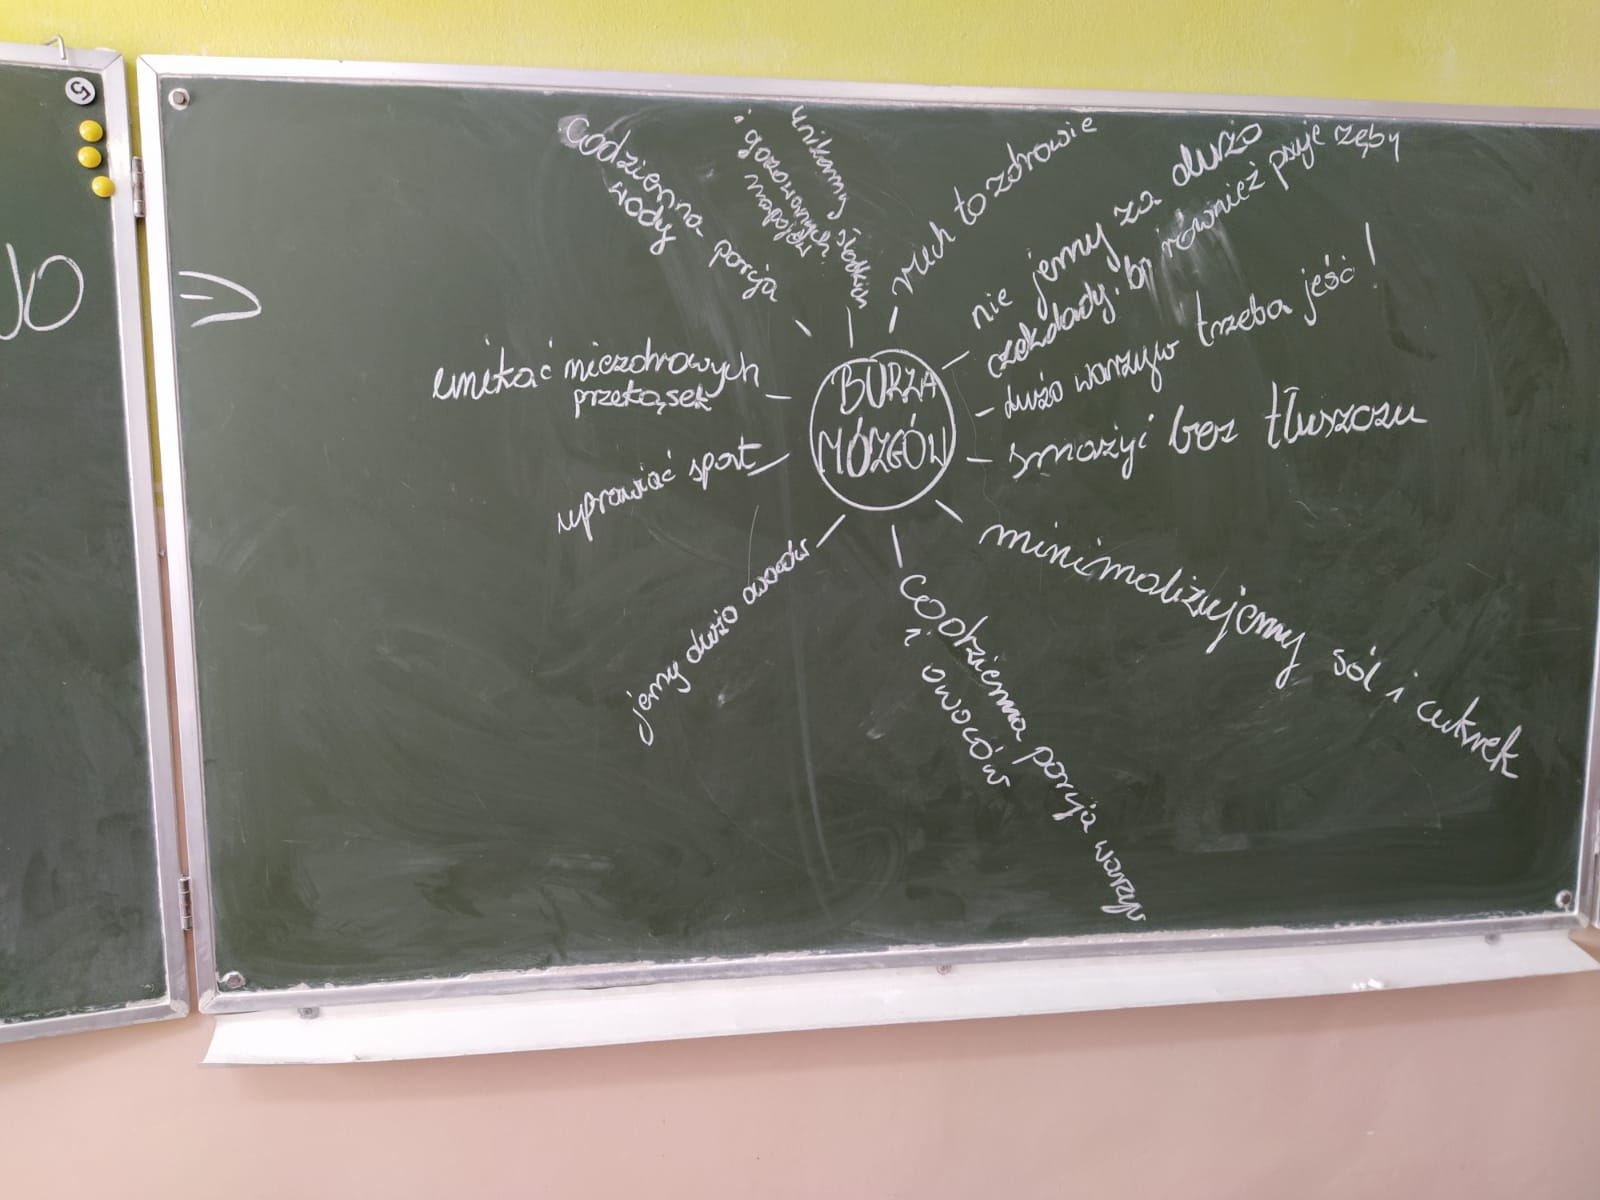 5
JO
=>
BURZA
MÓZGÓW
Codzienna porcja
wody
unikamy słodkich
i gazowanych
ruch to zdrowie
nie jemy za dużo
czekolady. bo również psuje zęby
dużo warzyw trzeba jeść!
smażyć bez tłuszczu
minimalizujemy sól i cukrek
Codzienna porcja warzyw
i owoców
jemy dużo owoców
uprawiać sport
unikać niezdrowych
przekąsek